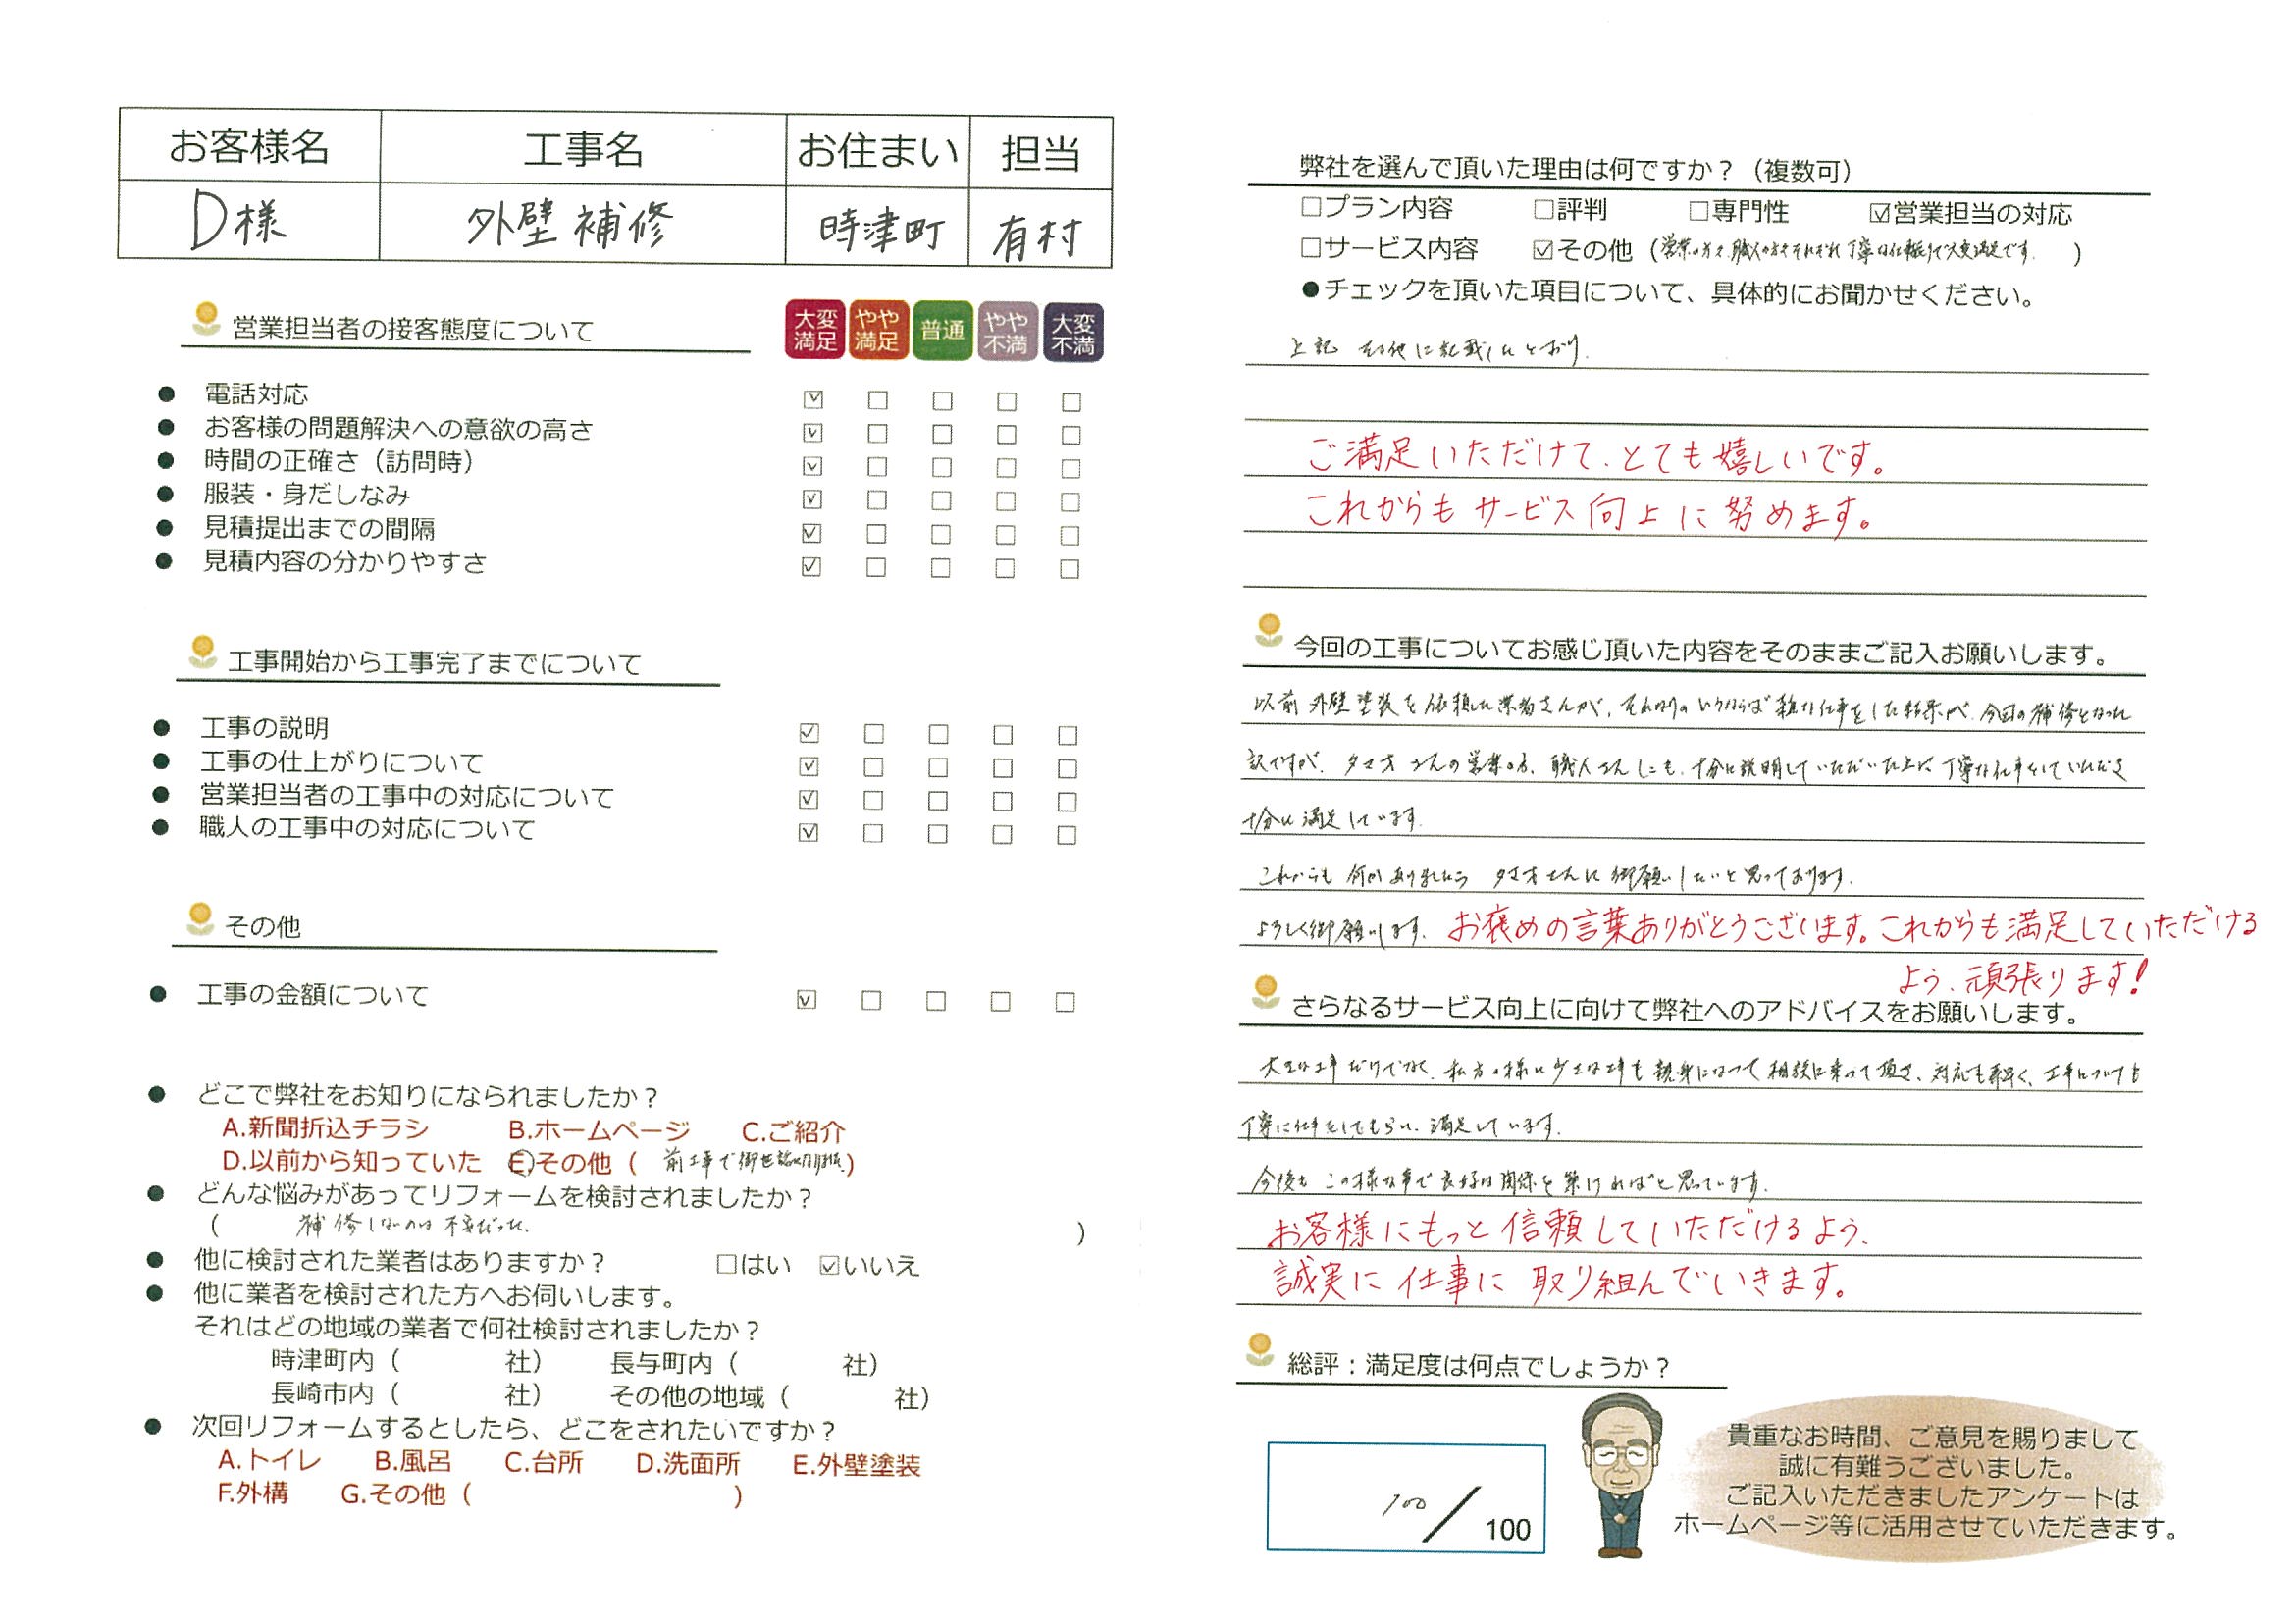 お客様名 工事名 お住まい 担当
D様 外壁補修 時津町 有村
営業担当者の接客態度について 大変満足 やや満足 普通 やや不満 大変不満
● 電話対応 ☑ □ □ □ □
● お客様の問題解決への意欲の高さ ☑ □ □ □ □
● 時間の正確さ（訪問時） ☑ □ □ □ □
● 服装・身だしなみ ☑ □ □ □ □
● 見積提出までの間隔 ☑ □ □ □ □
● 見積内容の分かりやすさ ☑ □ □ □ □
工事開始から工事完了までについて
● 工事の説明 ☑ □ □ □ □
● 工事の仕上がりについて ☑ □ □ □ □
● 営業担当者の工事中の対応について ☑ □ □ □ □
● 職人の工事中の対応について ☑ □ □ □ □
その他
● 工事の金額について ☑ □ □ □ □
● どこで弊社をお知りになられましたか？
A.新聞折込チラシ B.ホームページ C.ご紹介
D.以前から知っていた E.その他（ 前工事で御世話になりました）
● どんな悩みがあってリフォームを検討されましたか？
（ 補修しないのは不安だった. ）
● 他に検討された業者はありますか？ □はい ☑いいえ
● 他に業者を検討された方へお伺いします。
それはどの地域の業者で何社検討されましたか？
時津町内（ 社） 長与町内（ 社）
長崎市内（ 社） その他の地域（ 社）
● 次回リフォームするとしたら、どこをされたいですか？
A.トイレ B.風呂 C.台所 D.洗面所 E.外壁塗装
F.外構 G.その他（ ）
弊社を選んで頂いた理由は何ですか？（複数可）
□プラン内容 □評判 □専門性 ☑営業担当の対応
□サービス内容 ☑その他（営業の方々、職人の方々それぞれ丁寧な仕振りで大変満足です. ）
●チェックを頂いた項目について、具体的にお聞かせください。
上記 その他に記載したとおり.
ご満足いただけて、とても嬉しいです。
これからもサービス向上に努めます。
今回の工事についてお感じ頂いた内容をそのままご記入お願いします。
以前外壁塗装を依頼した業者さんが、それなりの いうならば 雑な仕事をした結果が、今回の補修となった
訳ですが、タマオさんの営業の方、職人さんにも、十分に説明していただいた上に丁寧な仕事をしていただき
十分に満足しています.
これからも 何かありましたら タマオさんに御願いしたいと思っております.
よろしく御願いします.
お褒めの言葉ありがとうございます。これからも満足していただける
よう、頑張ります！
さらなるサービス向上に向けて弊社へのアドバイスをお願いします。
大きな工事だけでなく、私方の様に少さな工事も親身になって相談に乗って頂き、対応も素早く、工事についても
丁寧に仕事をしてもらい、満足しています.
今後も この様な事で良好な関係を築ければと思っています.
お客様にもっと信頼していただけるよう、
誠実に仕事に取り組んでいきます。
総評：満足度は何点でしょうか？
100／100
貴重なお時間、ご意見を賜りまして
誠に有難うございました。
ご記入いただきましたアンケートは
ホームページ等に活用させていただきます。